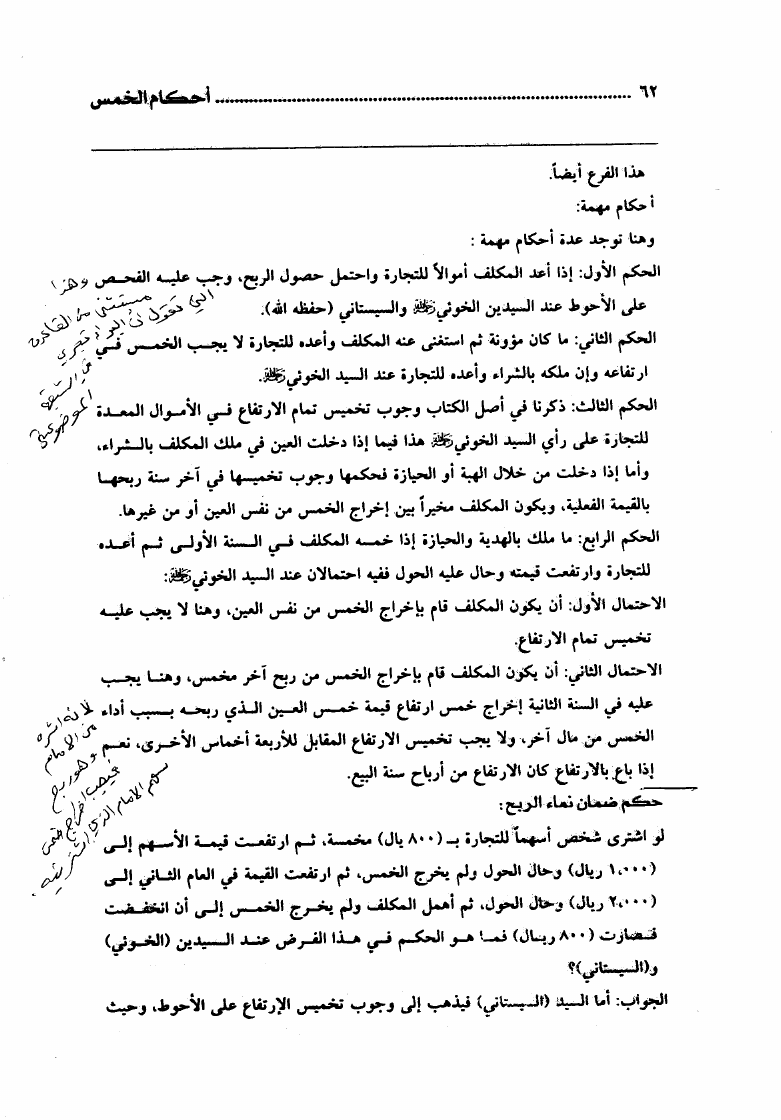 ٦٢ ........................................ أحكام الخمس
هذا الفرع أيضاً.
أحكام مهمة:
وهنا توجد عدة أحكام مهمة :
الحكم الأول: إذا أعد المكلف أموالاً للتجارة واحتمل حصول الربح، وجب عليه الفحص
على الأحوط عند السيدين الخوئي والسيستاني (حفظه الله).
الحكم الثاني: ما كان مؤونة ثم استغنى عنه المكلف وأعده للتجارة لا يجب الخمس في
ارتفاعه وإن ملكه بالشراء وأعده للتجارة عند السيد الخوئي.
الحكم الثالث: ذكرنا في أصل الكتاب وجوب تخميس تمام الارتفاع في الأموال المعدة
للتجارة على رأي السيد الخوئي هذا فيما إذا دخلت العين في ملك المكلف بالشراء،
وأما إذا دخلت من خلال الهبة أو الحيازة فحكمها وجوب تخميسها في آخر سنة ربحها
بالقيمة الفعلية، ويكون المكلف مخيراً بين إخراج الخمس من نفس العين أو من غيرها.
الحكم الرابع: ما ملك بالهدية والحيازة إذا خمسه المكلف في السنة الأولى ثم أعده
للتجارة وارتفعت قيمته وحال عليه الحول ففيه احتمالان عند السيد الخوئي:
الاحتمال الأول: أن يكون المكلف قام بإخراج الخمس من نفس العين، وهنا لا يجب عليه
تخميس تمام الارتفاع.
الاحتمال الثاني: أن يكون المكلف قام بإخراج الخمس من ربح آخر مخمس، وهنا يجب
عليه في السنة الثانية إخراج خمس ارتفاع قيمة خمس العين الذي ربحه بسبب أداء
الخمس من مال آخر، ولا يجب تخميس الارتفاع المقابل للأربعة أخماس الأخرى، نعم
إذا باع بالارتفاع كان الارتفاع من أرباح سنة البيع.
حكم ضمان نماء الربح:
لو اشترى شخص أسهماً للتجارة بـ (٨٠٠ يال) مخمسة، ثم ارتفعت قيمة الأسهم إلى
(١,٠٠٠ ريال) وحال الحول ولم يخرج الخمس، ثم ارتفعت القيمة في العام الثاني إلى
(٢,٠٠٠ ريال) وحال الحول، ثم أهمل المكلف ولم يخرج الخمس إلى أن انخفضت
فصارت (٨٠٠ ريال) فما هو الحكم في هذا الفرض عند السيدين (الخوئي)
و(السيستاني)؟
الجواب: أما السيد (السيستاني) فيذهب إلى وجوب تخميس الإرتفاع على الأحوط، وحيث
وهذا
مستثنى من القاعدة
التي تقول أن
لأنه اشتراه
من الإمام
وهو ربح
فيجب إخراج خمس
سهم الإمام الذي